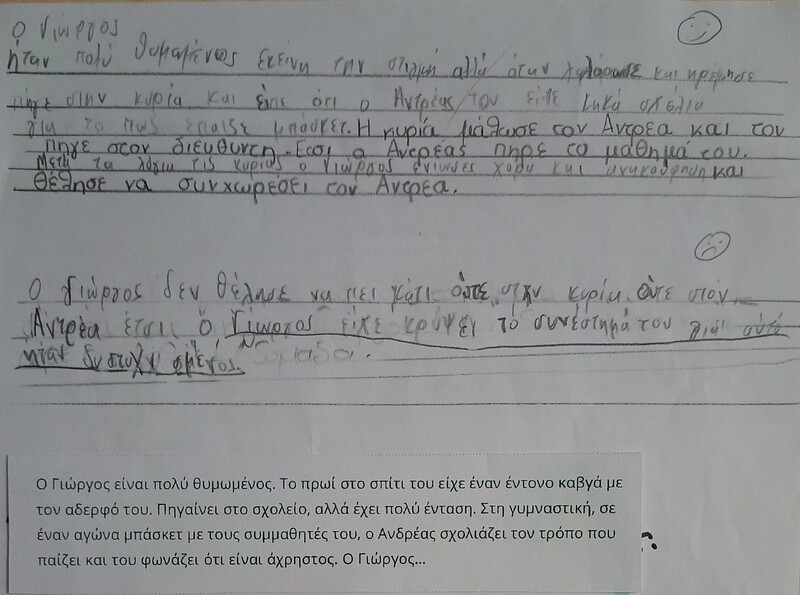 Ο Γιώργος
ήταν πολύ θυμωμένος εκείνη την στιγμή αλλά όταν χαλάρωσε και ηρέμησε
πήγε στην κυρία και είπε ότι ο Αντρέας του είπε κακά σχόλια
για το πως έπαιζε μπάσκετ. Η κυρία μάλωσε τον Αντρέα και τον
πηγε στον διευθυντη. Ετσι ο Αντρέας πηρε το μάθημά του.
Μετά τα λόγια τις κυρίας ο Γιώργος ένιωσε χαρά και ανακούφηση και
θέλησε να συνχωρέσει τον Αντρέα.
Ο Γιώργος δεν θέλησε να πει κάτι ούτε στην κυρία ούτε στον
Αντρέα έτσι ο Γιώργος είχε κρύψει το συνέστημά του και αυτό
ηταν δυστυχισμένος.
Ο Γιώργος είναι πολύ θυμωμένος. Το πρωί στο σπίτι του είχε έναν έντονο καβγά με
τον αδερφό του. Πηγαίνει στο σχολείο, αλλά έχει πολύ ένταση. Στη γυμναστική, σε
έναν αγώνα μπάσκετ με τους συμμαθητές του, ο Ανδρέας σχολιάζει τον τρόπο που
παίζει και του φωνάζει ότι είναι άχρηστος. Ο Γιώργος...